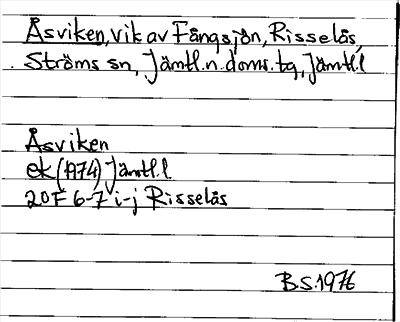 Åsviken, vik av Fångsjön, Risselås,
Ströms sn, Jämtl.n.doms.tg, Jämtl.l
Åsviken
ek (1974) Jämtl.l
20F 6-7 i-j Risselås
B.S.1976